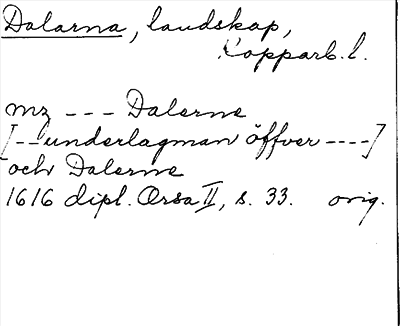 Dalarna, landskap,
Kopparb. l.
mz --- Dalerne
[-- underlagman öffver ----]
och Dalerne
1616 dipl. Orsa II, s. 33. orig.